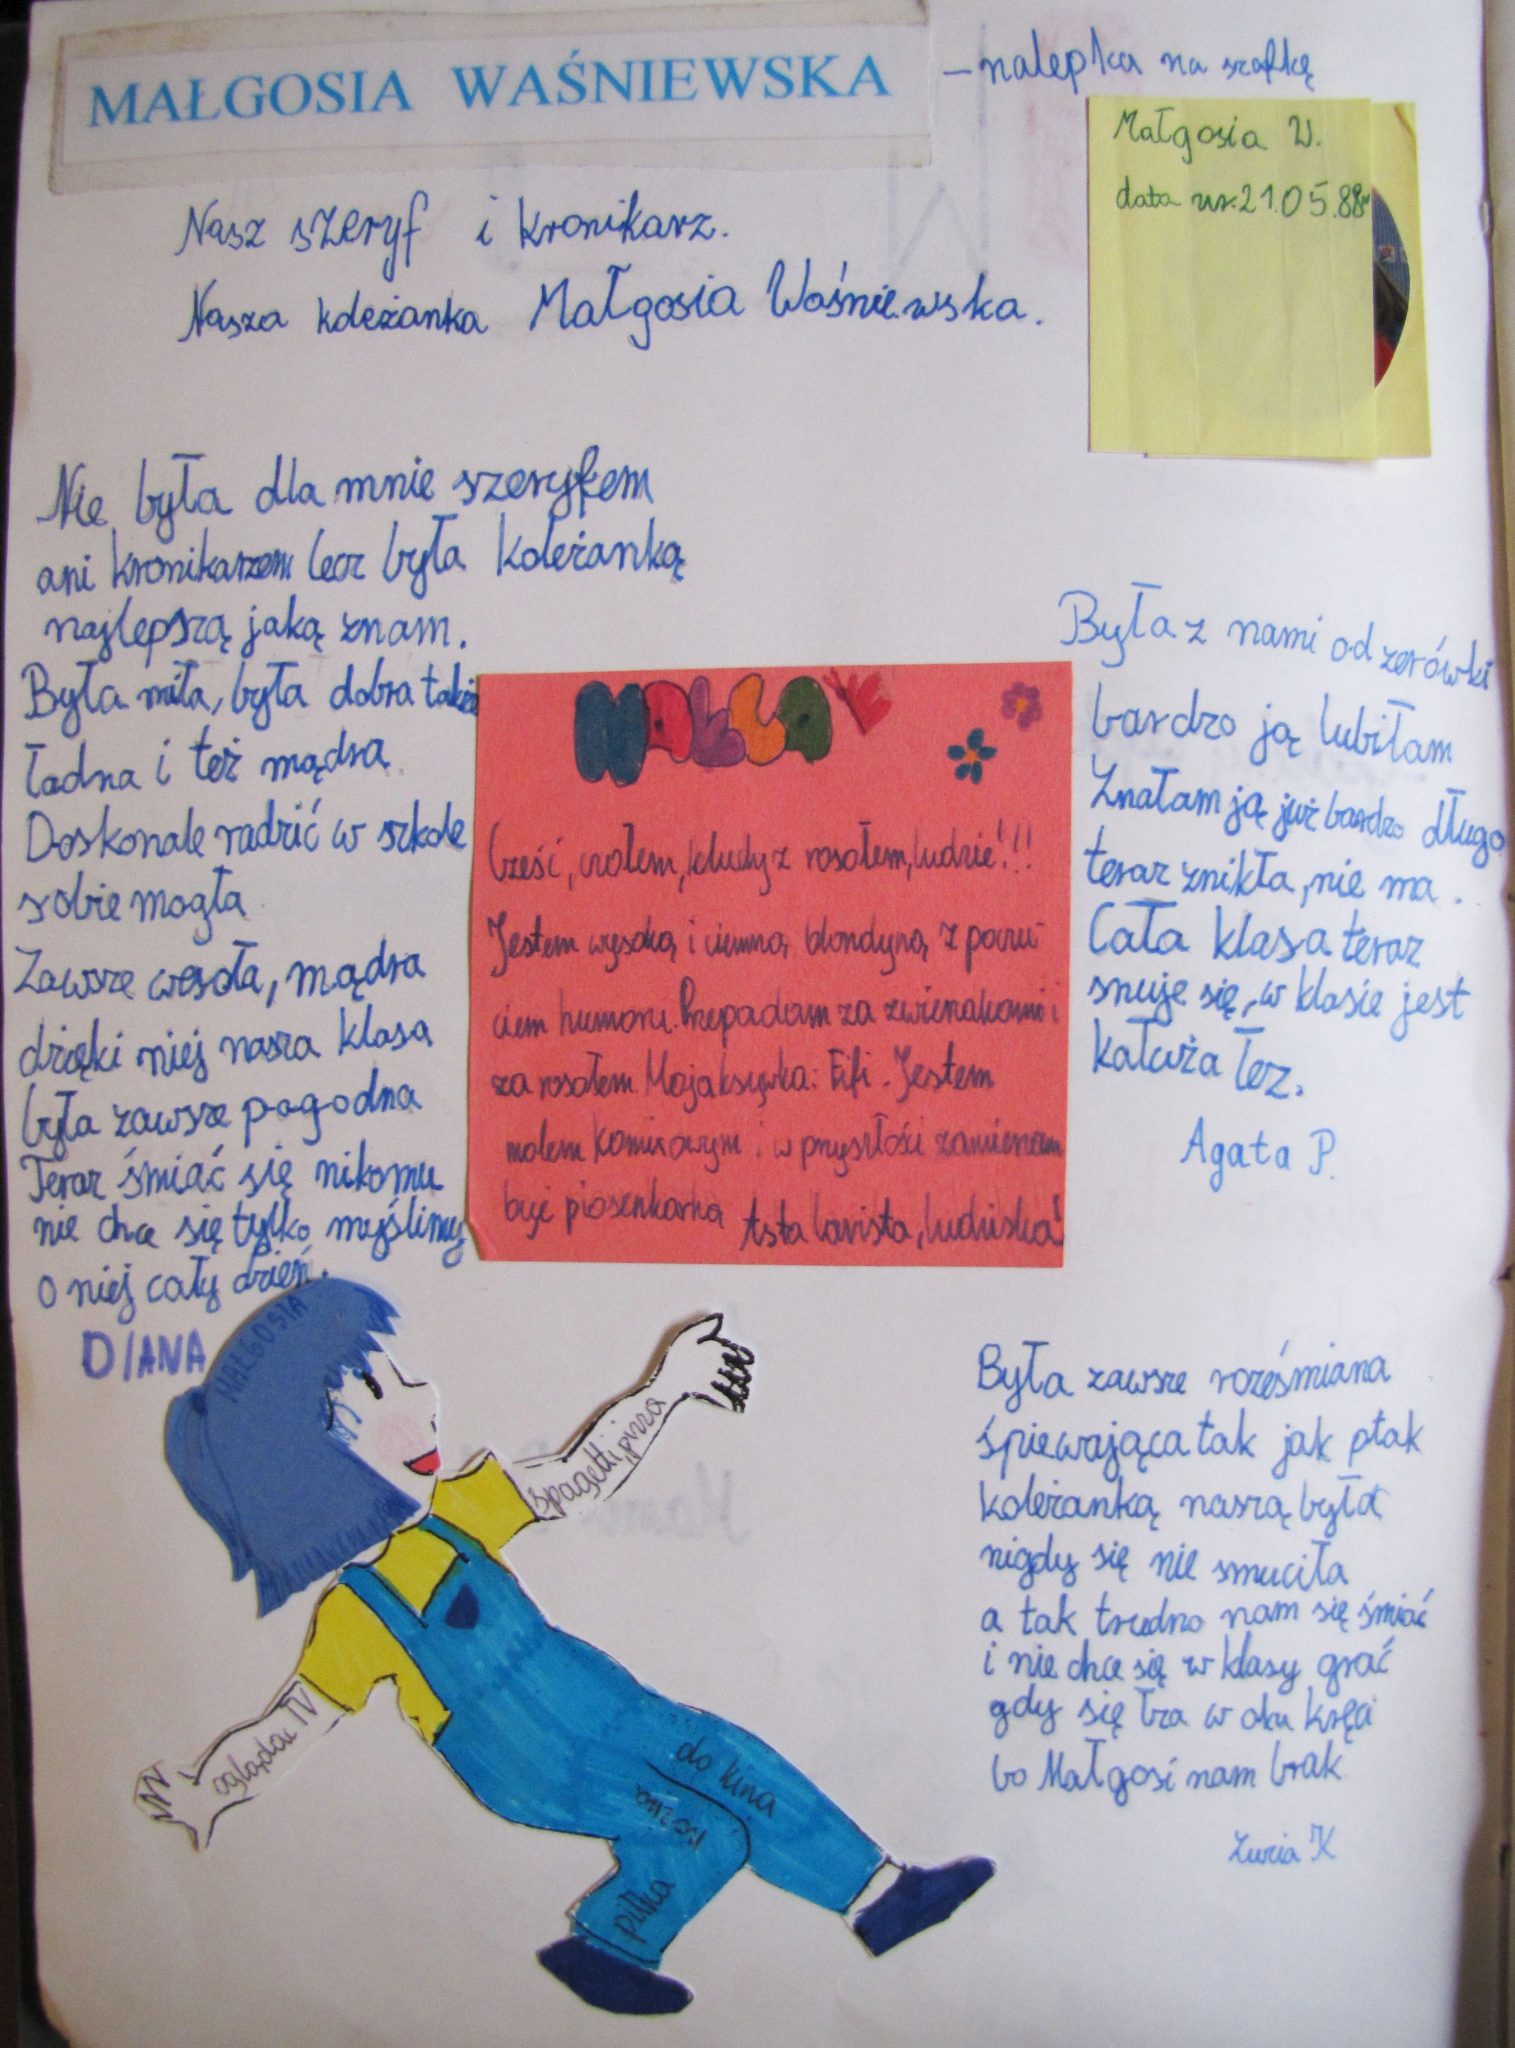 MAŁGOSIA WAŚNIEWSKA
– nalepka na szafkę
Małgosia W.
data ur. 21.05.88r
Nasz szeryf i kronikarz.
Nasza koleżanka Małgosia Waśniewska.
Nie była dla mnie szeryfem
ani kronikarzem lecz była koleżanką
najlepszą jaką znam.
Była miła, była dobra także
ładna i też mądra
Doskonale radzić w szkole
sobie mogła
Zawsze wesoła, mądra
dzięki niej nasza klasa
była zawsze pogodna
Teraz śmiać się nikomu
nie chce się tylko myślimy
o niej cały dzień.
DIANA
MAŁGA
Cześć, czołem, kluchy z rosołem, ludzie!!!
Jestem wysoką i ciemną blondyną z poczu-
ciem humoru. Przepadam za zwierzakami i
za rosołem. Moja ksywka: Fifi. Jestem
molem komixowym i w przyszłości zamierzam
być piosenkarką
Asta lavista, ludziska!
Była z nami od zerówki
bardzo ją lubiłam
Znałam ją już bardzo długo
teraz znikła, nie ma.
Cała klasa teraz
snuje się, w klasie jest
kałuża łez.
Agata P.
MAŁGOSIA
spagetti, pizza
oglądać TV
do kina
nożna
piłka
Była zawsze roześmiana
śpiewająca tak jak ptak
koleżanką naszą była
nigdy się nie smuciła
a tak trudno nam się śmiać
i nie chce się w klasy grać
gdy się łza w oku kręci
bo Małgosi nam brak
Zuzia K